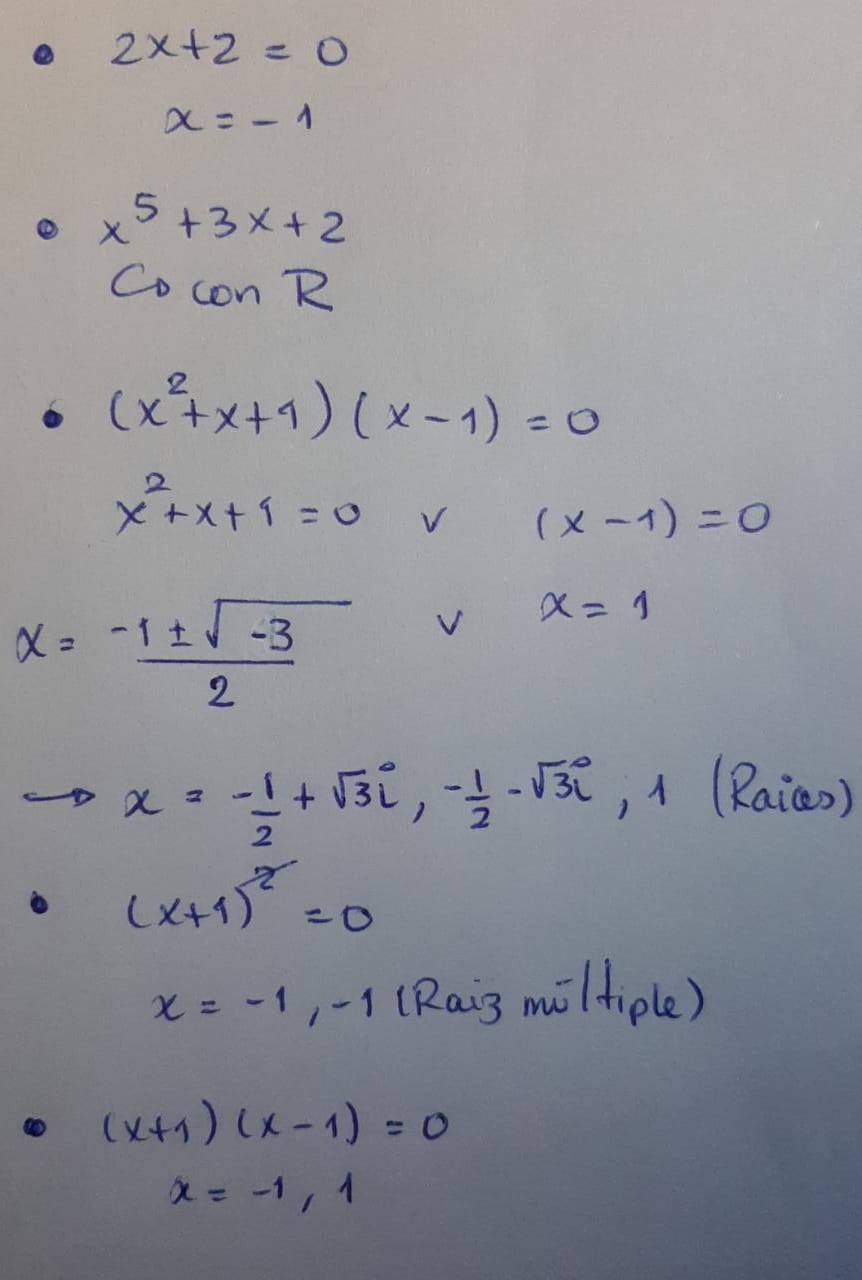 • 2x+2 = 0
x = -1
• x⁵+3x+2
Co con R
• (x²+x+1)(x-1) = 0
x²+x+1 = 0 v (x-1) = 0
x = (-1±√-3)/2 v x = 1
→ x = -1/2 + √3i, -1/2 - √3i, 1 (Raices)
• (x+1)² = 0
x = -1, -1 (Raiz múltiple)
• (x+1)(x-1) = 0
x = -1, 1